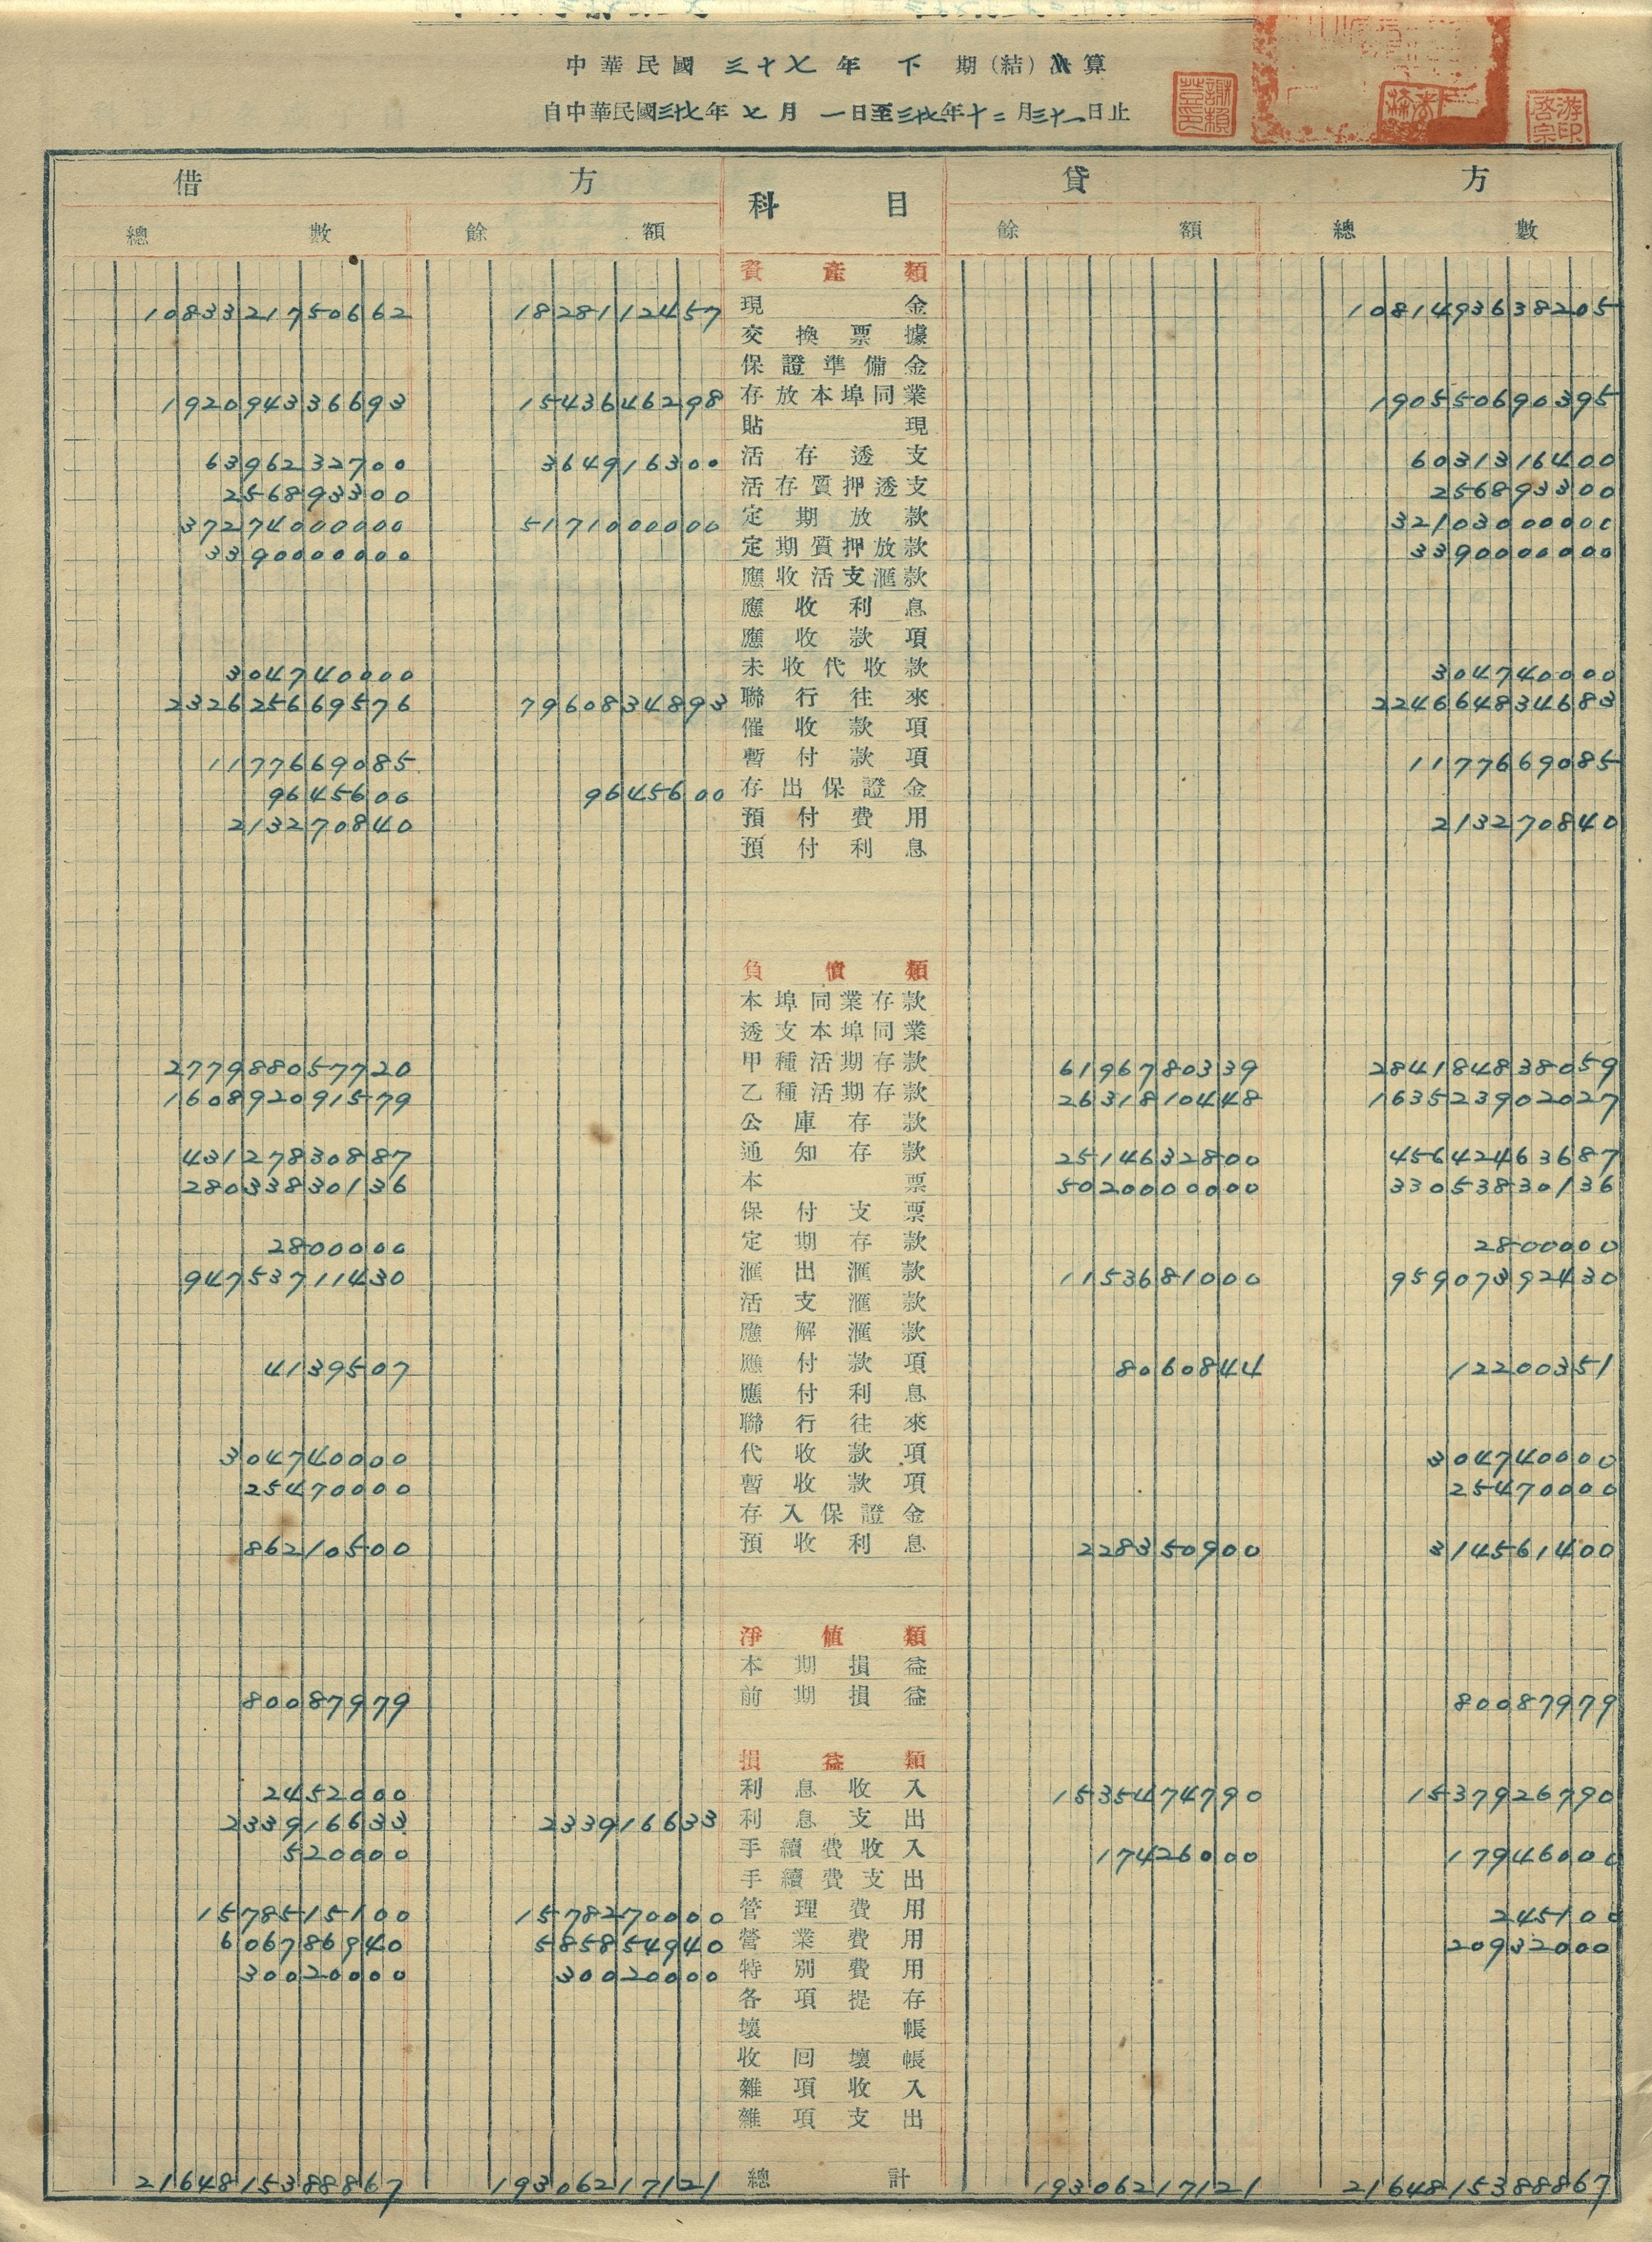 中華民國三十七年下期(結)決算
自中華民國三十七年七月一日至三十七年十二月三十一日止
謝賴登印
游印啓宗
借方 科目 貸方
總數 餘額 餘額 總數
資產類
1083321750662 1828112457 現金 1081493638205
交換票據
保證準備金
192094336693 1543646298 存放本埠同業 190550690395
貼現
6396232700 364916300 活存透支 6031316400
256893300 活存質押透支 256893300
37274000000 5171000000 定期放款 32103000000
3390000000 定期質押放款 3390000000
應收活支滙款
應收利息
應收款項
304740000 未收代收款 304740000
232625669576 7960834893 聯行往來 224664834683
催收款項
1177669085 暫付款項 1177669085
9645600 9645600 存出保證金
213270840 預付費用 213270840
預付利息
負債類
本埠同業存款
透支本埠同業
277988057720 甲種活期存款 6196780339 284184838059
160892091579 乙種活期存款 2631810448 163523902027
公庫存款
43127830887 通知存款 2514632800 45642463687
28033830136 本票 5020000000 33053830136
保付支票
2800000 定期存款 2800000
94753711430 滙出滙款 1153681000 95907392430
活支滙款
應解滙款
4139507 應付款項 8060844 12200351
應付利息
聯行往來
304740000 代收款項 304740000
25470000 暫收款項 25470000
存入保證金
86210500 預收利息 228350900 314561400
淨值類
本期損益
80087979 前期損益 80087979
損益類
2452000 利息收入 1535474790 1537926790
233916633 233916633 利息支出
520000 手續費收入 17426000 17946000
手續費支出
1578515100 1578270000 管理費用 245100
606786940 585854940 營業費用 20932000
30020000 30020000 特別費用
各項提存
壞帳
收回壞帳
雜項收入
雜項支出
2164815388867 19306217121 總計 19306217121 2164815388867